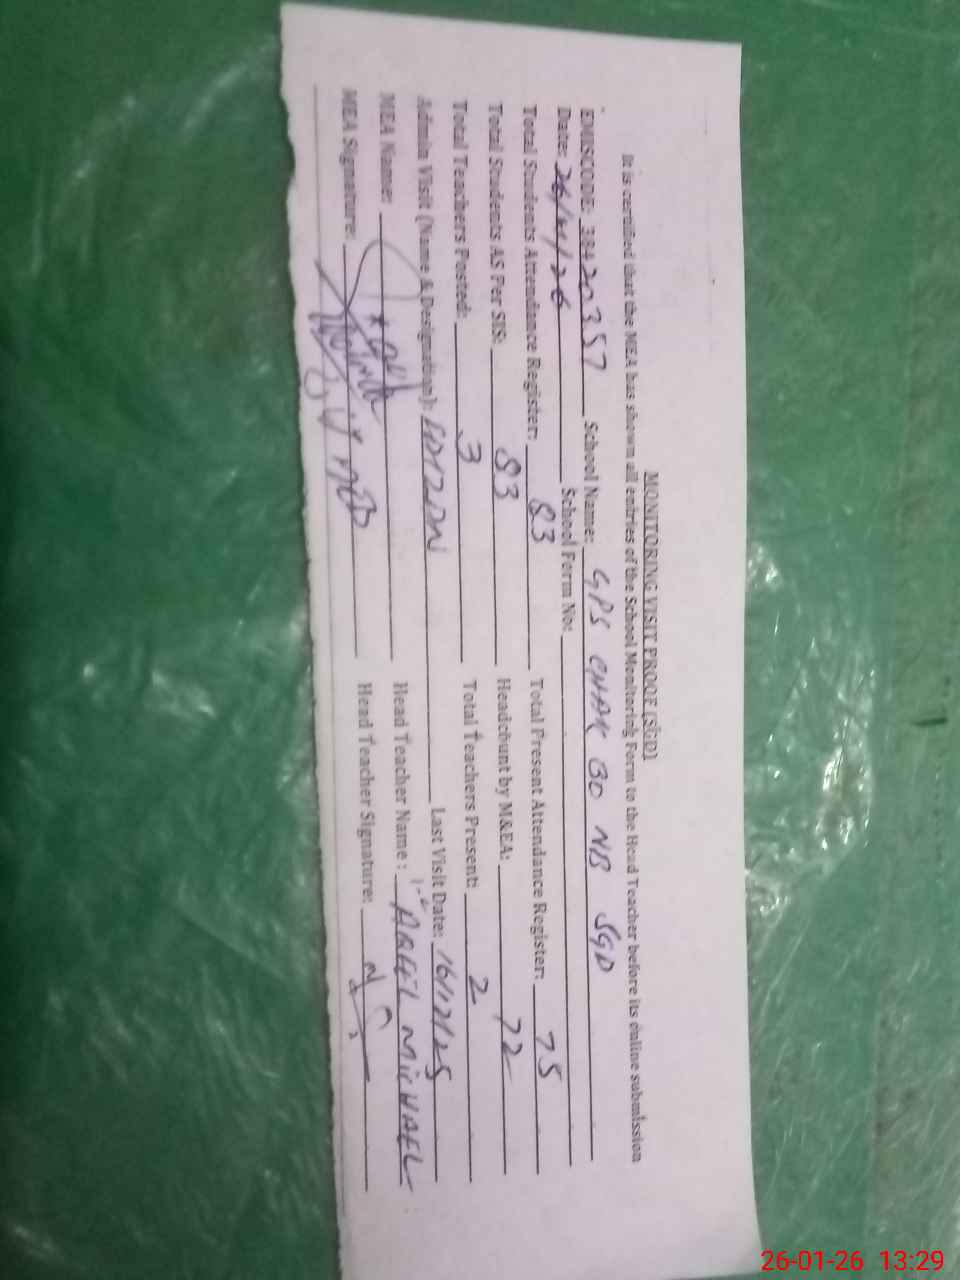 MONITORING VISIT PROOF [SGD]
It is certified that the MEA has shown all entries of the School Monitoring Form to the Head Teacher before its online submission
EMISCODE: 38420357 School Name: GPS CHAK 30 NB SGD
Date: 26/01/26 School Form No:
Total Students Attendance Register: 83 Total Present Attendance Register: 75
Total Students AS Per SIS: 83 Headcount by M&EA: 72
Total Teachers Posted: 3 Total Teachers Present: 2
Admin Visit (Name & Designation): Last Visit Date: 16/12/25
MEA Name: Head Teacher Name: AQEEL MICHAEL
MEA Signature: Head Teacher Signature:
26-01-26 13:29